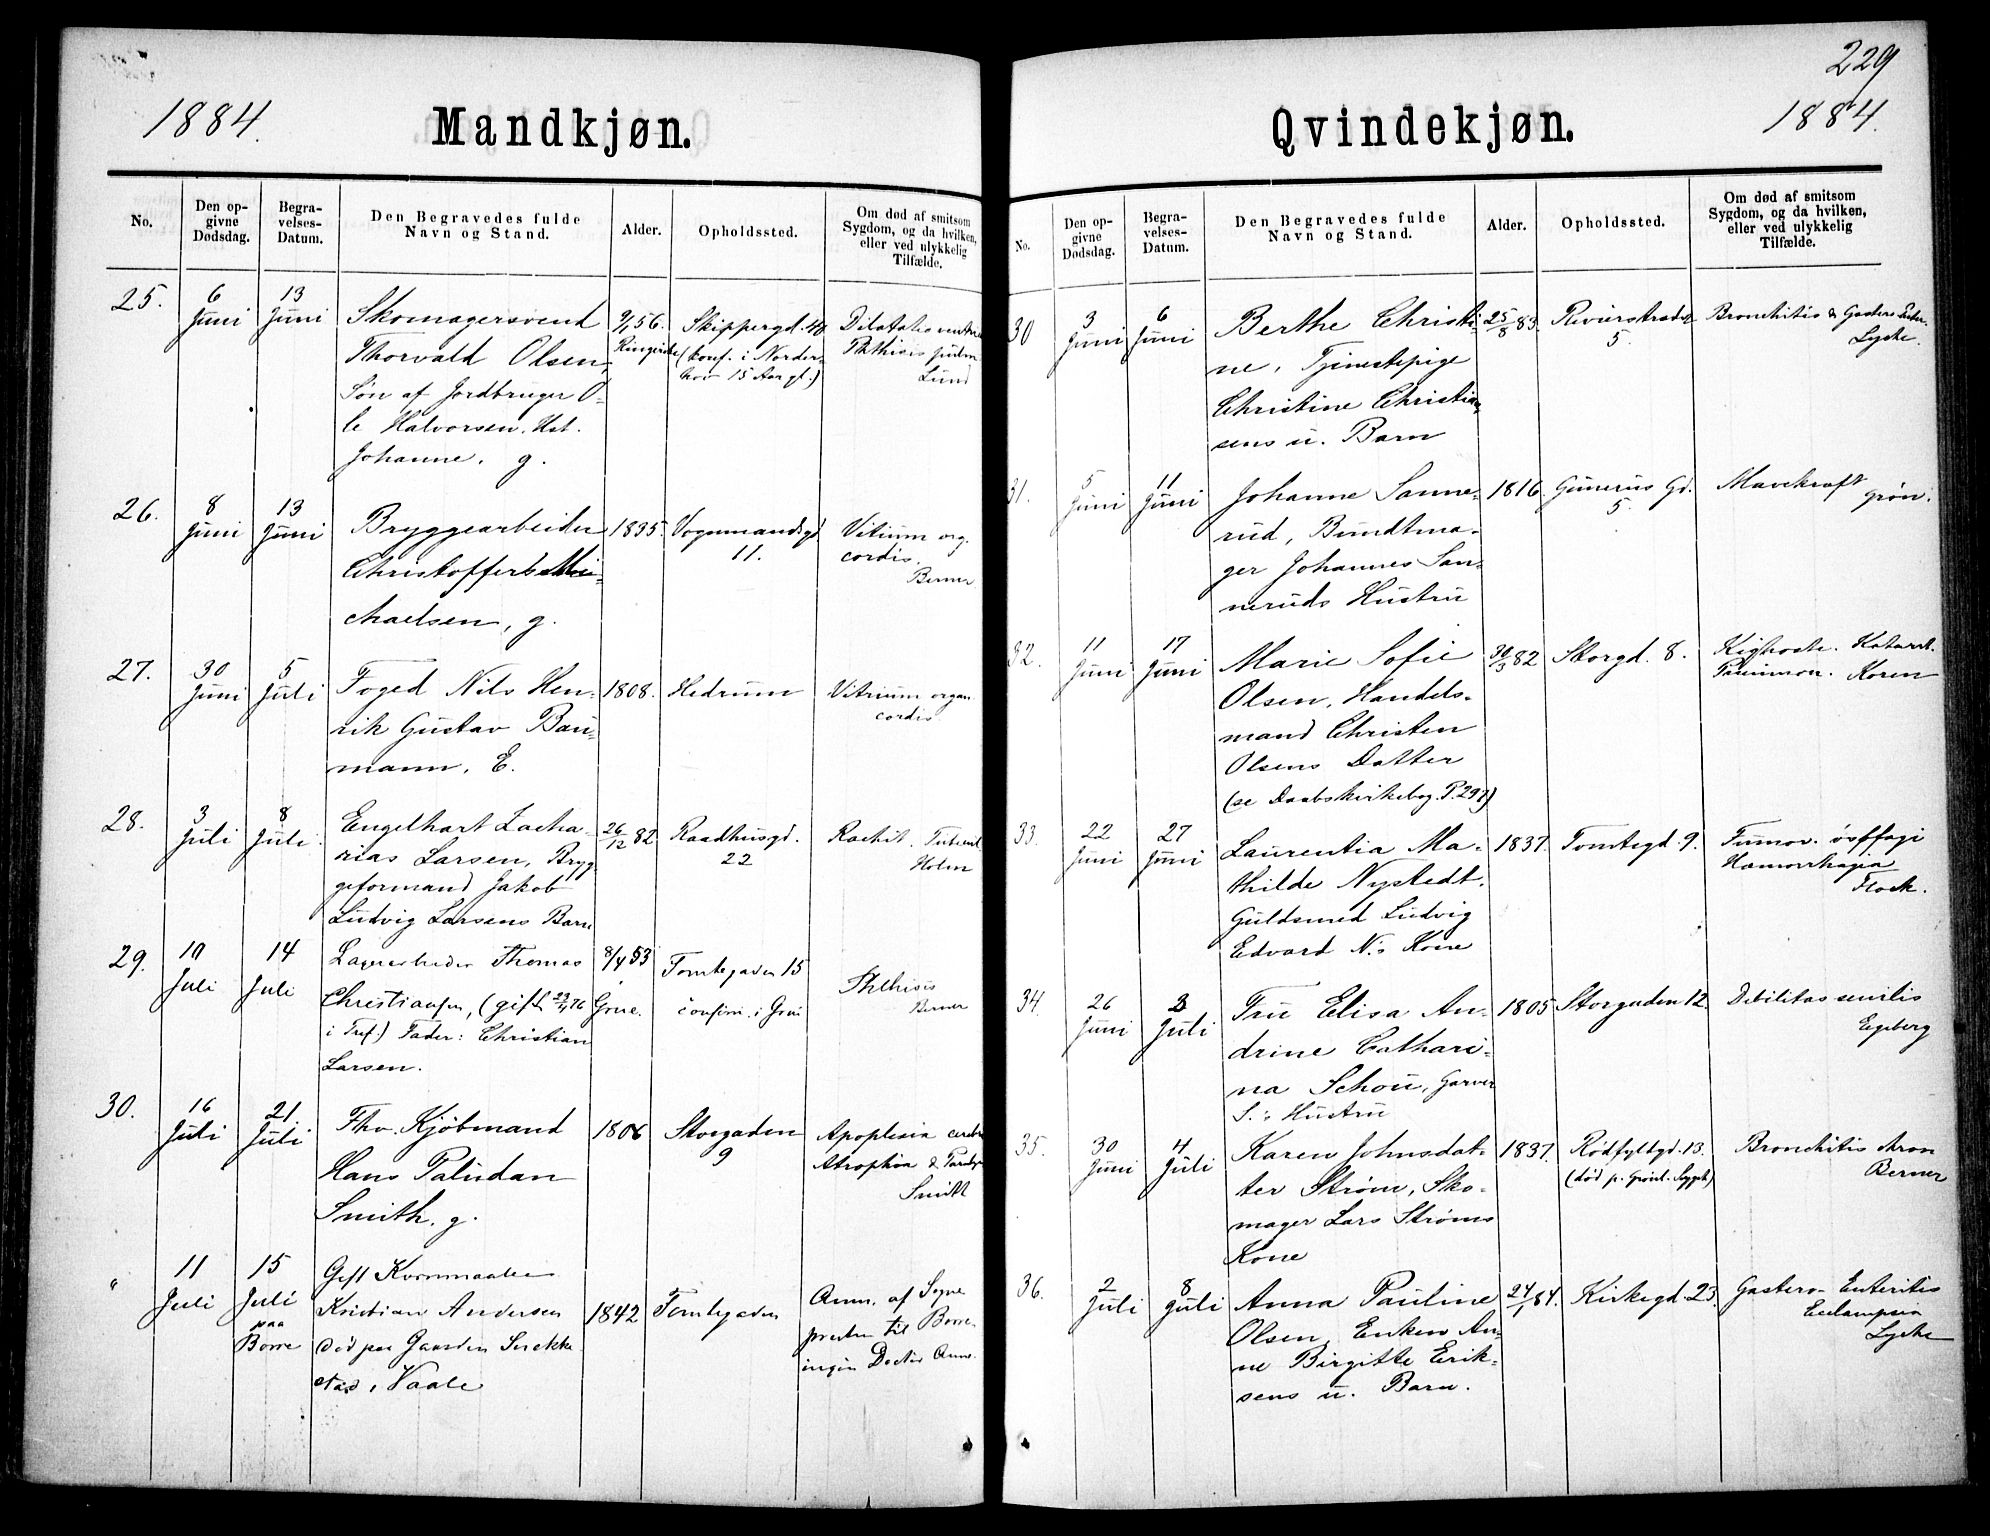 229
1884.
Mandkjøn.
No.
Den opgivne Dødsdag.
Begravelses-Datum.
Den Begravedes fulde Navn og Stand.
Alder.
Opholdssted.
Om død af smitsom Sygdom, og da hvilken, eller ved ulykkelig Tilfælde.
25.
6 Juni
13 Juni
Skomagersvend
Thorvald Olsen,
Søn af Jordbruger O-
le Halvorsen. Hst.
Johanne. g.
9/1 56.
Ringerike
Skippergd. 48
(konf. i Norder-
hov 15 Aar gl.)
Dilatatio
Phthisis pulm
Lund
26.
8 Juni
13 Juni
Bryggearbeider
Christoffer Mi-
chaelsen, g.
1835.
Vognmandsgd
11.
Vitium org.
cordis.
Berner
27.
30 Juni
5 Juli
Foged Nils Hen-
rik Gustav Bau-
mann. E.
1808.
Hedrum
Vitrium organ
cordis
28.
3 Juli
8 Juli.
Engelhart Zacha-
rias Larsen, Bryg
geformand Jakob
Ludvig Larsens Barn
26/12 82
Raadhusgd.
22
Rachit.
Holm
29.
10 Juli
14 Juli
Thomas
Christiansen, (gift 76
i Tref.) Fader: Christian
Larsen.
8/4 53
Grue.
Tomtegaden 15
confirm. i Grue
Phthisis
Berner
30.
16 Juli
21. Juli
Fhv. Kjöbmand
Hans Paludan
Smith. g.
1806
Storgaden
9
Apoplexia cerebr
Atrophia &
Smith
"
11 Juli
15 Juli
paa
Borre
Gift Kornmaaler
Kristian Andersen
død paa Gaarden
stad, Vaale
1842
Tomtegaden
Anm. af Sogne
presten til Borre.
ingen Doctor Anm.
Qvindekjøn.
1884.
No.
Den opgivne Dødsdag.
Begravelses-Datum.
Den Begravedes fulde Navn og Stand.
Alder.
Opholdssted.
Om død af smitsom Sygdom, og da hvilken, eller ved ulykkelig Tilfælde.
30
3 Juni
6 Juni
Berthe Christi-
ne, Tjenestepige
Christine Christian
sens u. Barn
25/8 83.
Revierstrædet
5.
Bronchitis & Gastero Enter.
Lyche.
31.
5 Juni
11 Juni
Johanne Sanne-
rud, Bundtma-
ger Johannes San-
neruds Hustru
1816.
Gunerus Gd.
5.
Mavekræft
Grøn.
32.
11 Juni
17 Juni
Marie Sofie
Olsen, Handels-
mand Christen
Olsens Datter
(se Daabskirkebog. P. 297)
30/3 82
Storgd. 8.
Kighoste. Katarrh.
Pneumon. Koren
33.
22 Juni
27 Juni
Laurentia Ma-
thilde Nystedt.
Guldsmed Ludvig
Edvard N.s Kone
1837.
Tomtegd. 9.
Tumor. ösoffagi
Hæmorrhagia
Flock.
34.
26 Juni
3 Juli
Fru Elisa An-
drine Cathari-
na Schou, Garver
S.:s Hustru
1805
Storgaden 12.
Debilitas senilis
Egeberg
35.
30 Juni
4 Juli
Karen Johnsdat-
ter Strøm, Sko-
mager Lars Strøms
Kone
1837.
Rødfyldgd. 13.
(død p. Grönl. Sygeh)
Bronchitis chron
Berner
36.
2 Juli
8 Juli
Anna Pauline
Olsen, Enken An-
ne Birgitte Erik-
sens u. Barn.
24/1 84.
Kirkegd. 23.
Gastero Enteritis
Eclampsia
Lyche